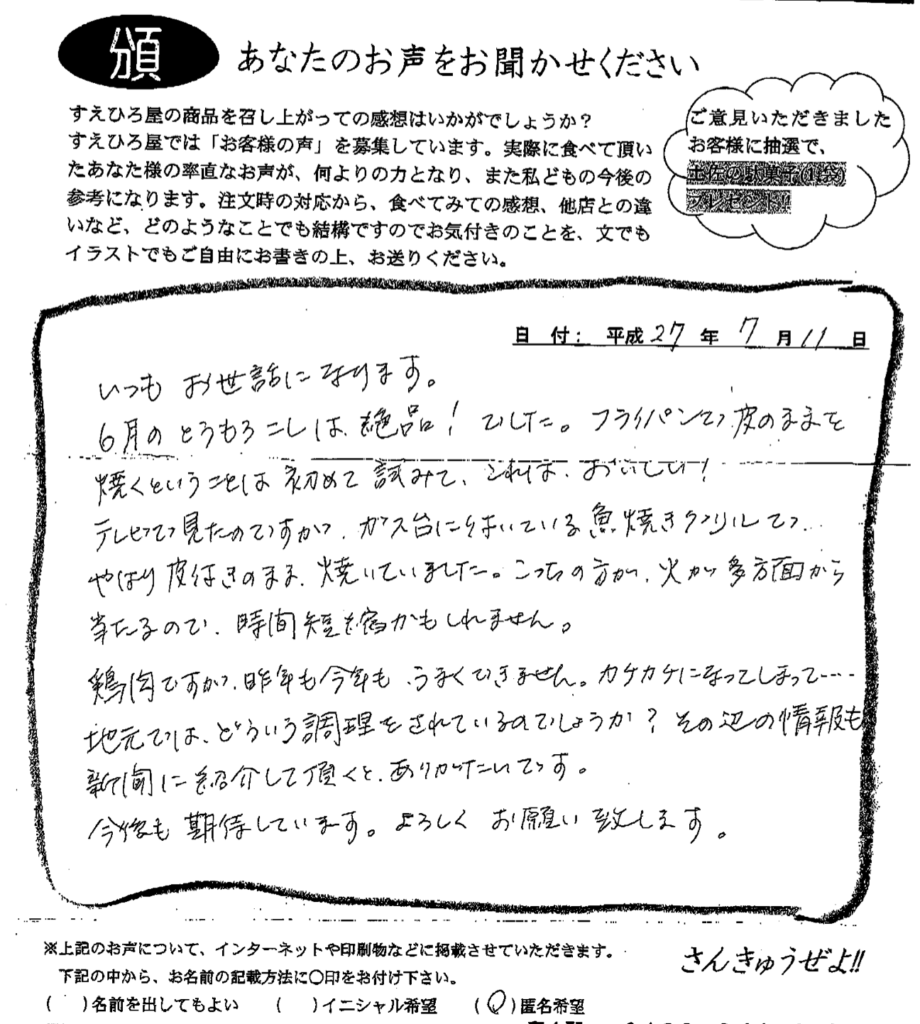 頒
あなたのお声をお聞かせください
すえひろ屋の商品を召し上がっての感想はいかがでしょうか？
すえひろ屋では「お客様の声」を募集しています。実際に食べて頂い
たあなた様の率直なお声が、何よりの力となり、また私どもの今後の
参考になります。注文時の対応から、食べてみての感想、他店との違
いなど、どのようなことでも結構ですのでお気付きのことを、文でも
イラストでもご自由にお書きの上、お送りください。
ご意見いただきました
お客様に抽選で、
土佐の駄菓子(1袋)
プレゼント!!
日 付： 平成 27 年 7 月 11 日
いつも お世話になります。
6月の とうもろこしは、絶品！でした。フライパンで皮のままを
焼くということは 初めて 試みて、これは、おいしい！
テレビで見たのですが、ガス台に付いている魚焼きグリルで、
やはり皮付きのまま、焼いていました。こっちの方が、火が多方面から
当たるので、時間短縮かもしれません。
鶏肉ですが、昨年も今年も、うまくできません。カケカケになってしまって……
地元では、どういう調理をされているのでしょうか？その辺の情報も
新聞に紹介して頂くと、ありがたいです。
今後も 期待しています。よろしく お願い致します。
※上記のお声について、インターネットや印刷物などに掲載させていただきます。
下記の中から、お名前の記載方法に〇印をお付け下さい。
( )名前を出してもよい ( )イニシャル希望 (〇)匿名希望
さんきゅうぜよ!!